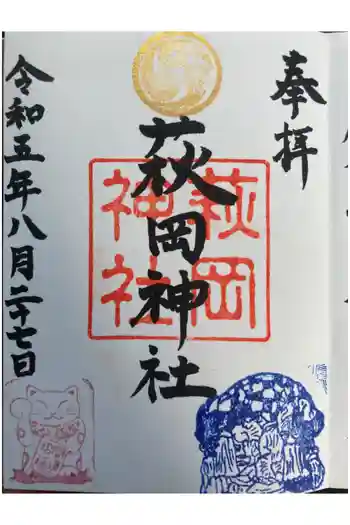 奉拝
萩岡神社
萩岡
神社
令和五年八月二十七日